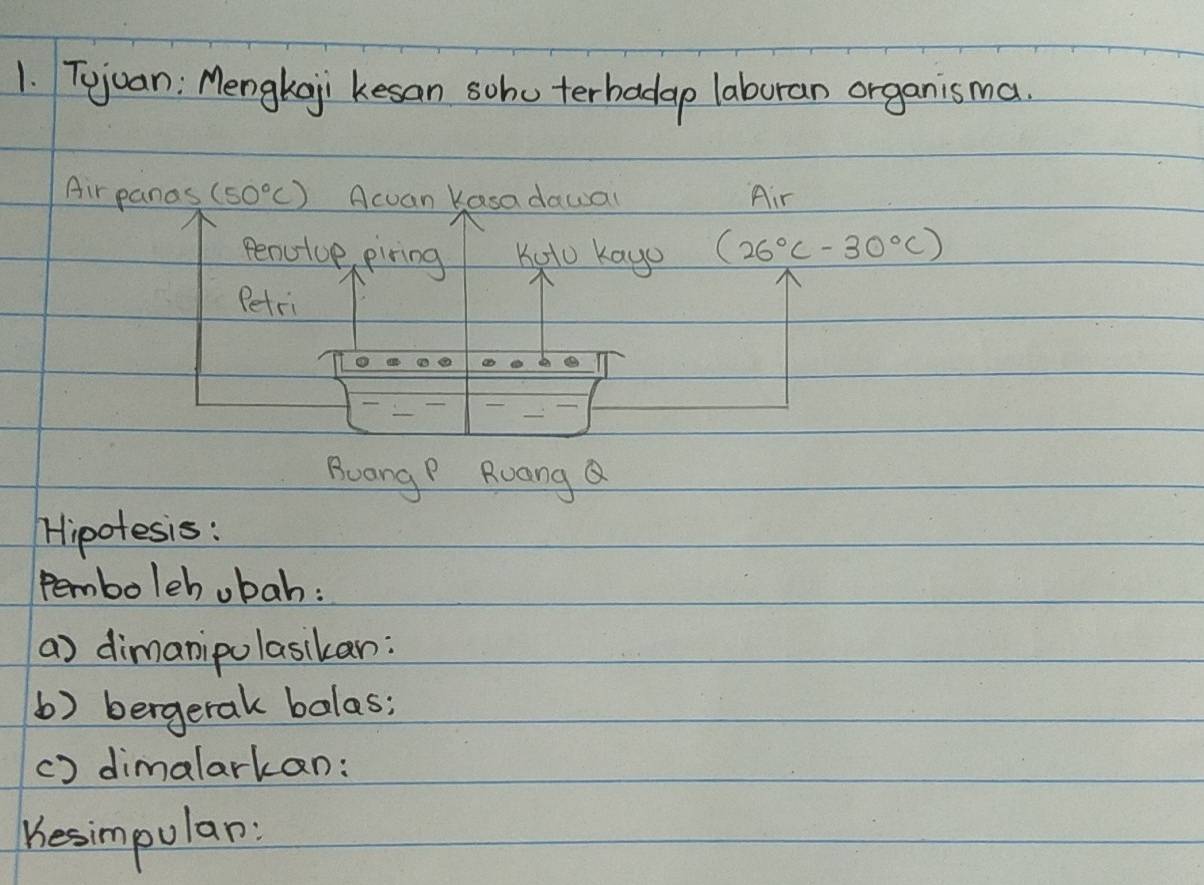 1. Tujuan: Mengkaji kesan suhu terhadap laburan organisma.
Air panas (50°C) Acuan Kasa dawai Air
Penutup piring Kutu kayu (26°C - 30°C)
Petri
Ruang P Ruang Q
Hipotesis:
Pemboleh ubah:
a) dimanipulasikan:
b) bergerak balas:
c) dimalarkan:
Kesimpulan: